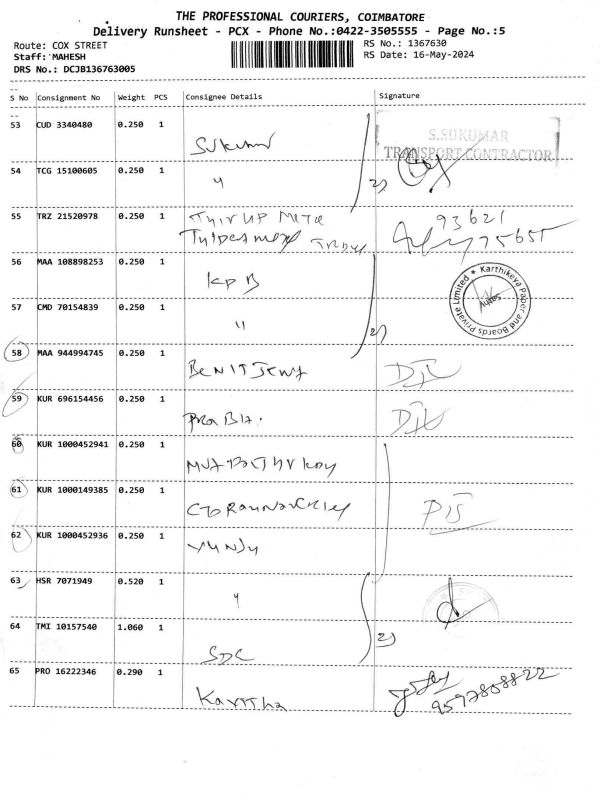 THE PROFESSIONAL COURIERS, COIMBATORE
Delivery Runsheet - PCX - Phone No.:0422-3505555 - Page No.:5
Route: COX STREET
RS No.: 1367630
Staff: MAHESH
RS Date: 16-May-2024
DRS No.: DCJB136763005
S No Consignment No Weight PCS Consignee Details Signature
53 CUD 3340480 0.250 1
S.SUKUMAR
TRANSPORT CONTRACTOR
Sukumar
54 TCG 15100605 0.250 1
"
2)
55 TRZ 21520978 0.250 1
93621
75655
56 MAA 108898253 0.250 1
KPB
Karthikeya Paper and Boards Private Limited ★
Sathy
57 CMD 70154839 0.250 1
"
2)
58 MAA 944994745 0.250 1
59 KUR 696154456 0.250 1
60 KUR 1000452941 0.250 1
61 KUR 1000149385 0.250 1
62 KUR 1000452936 0.250 1
63 HSR 7071949 0.520 1
"
64 TMI 10157540 1.060 1
2)
SDC
65 PRO 16222346 0.290 1
9597808822